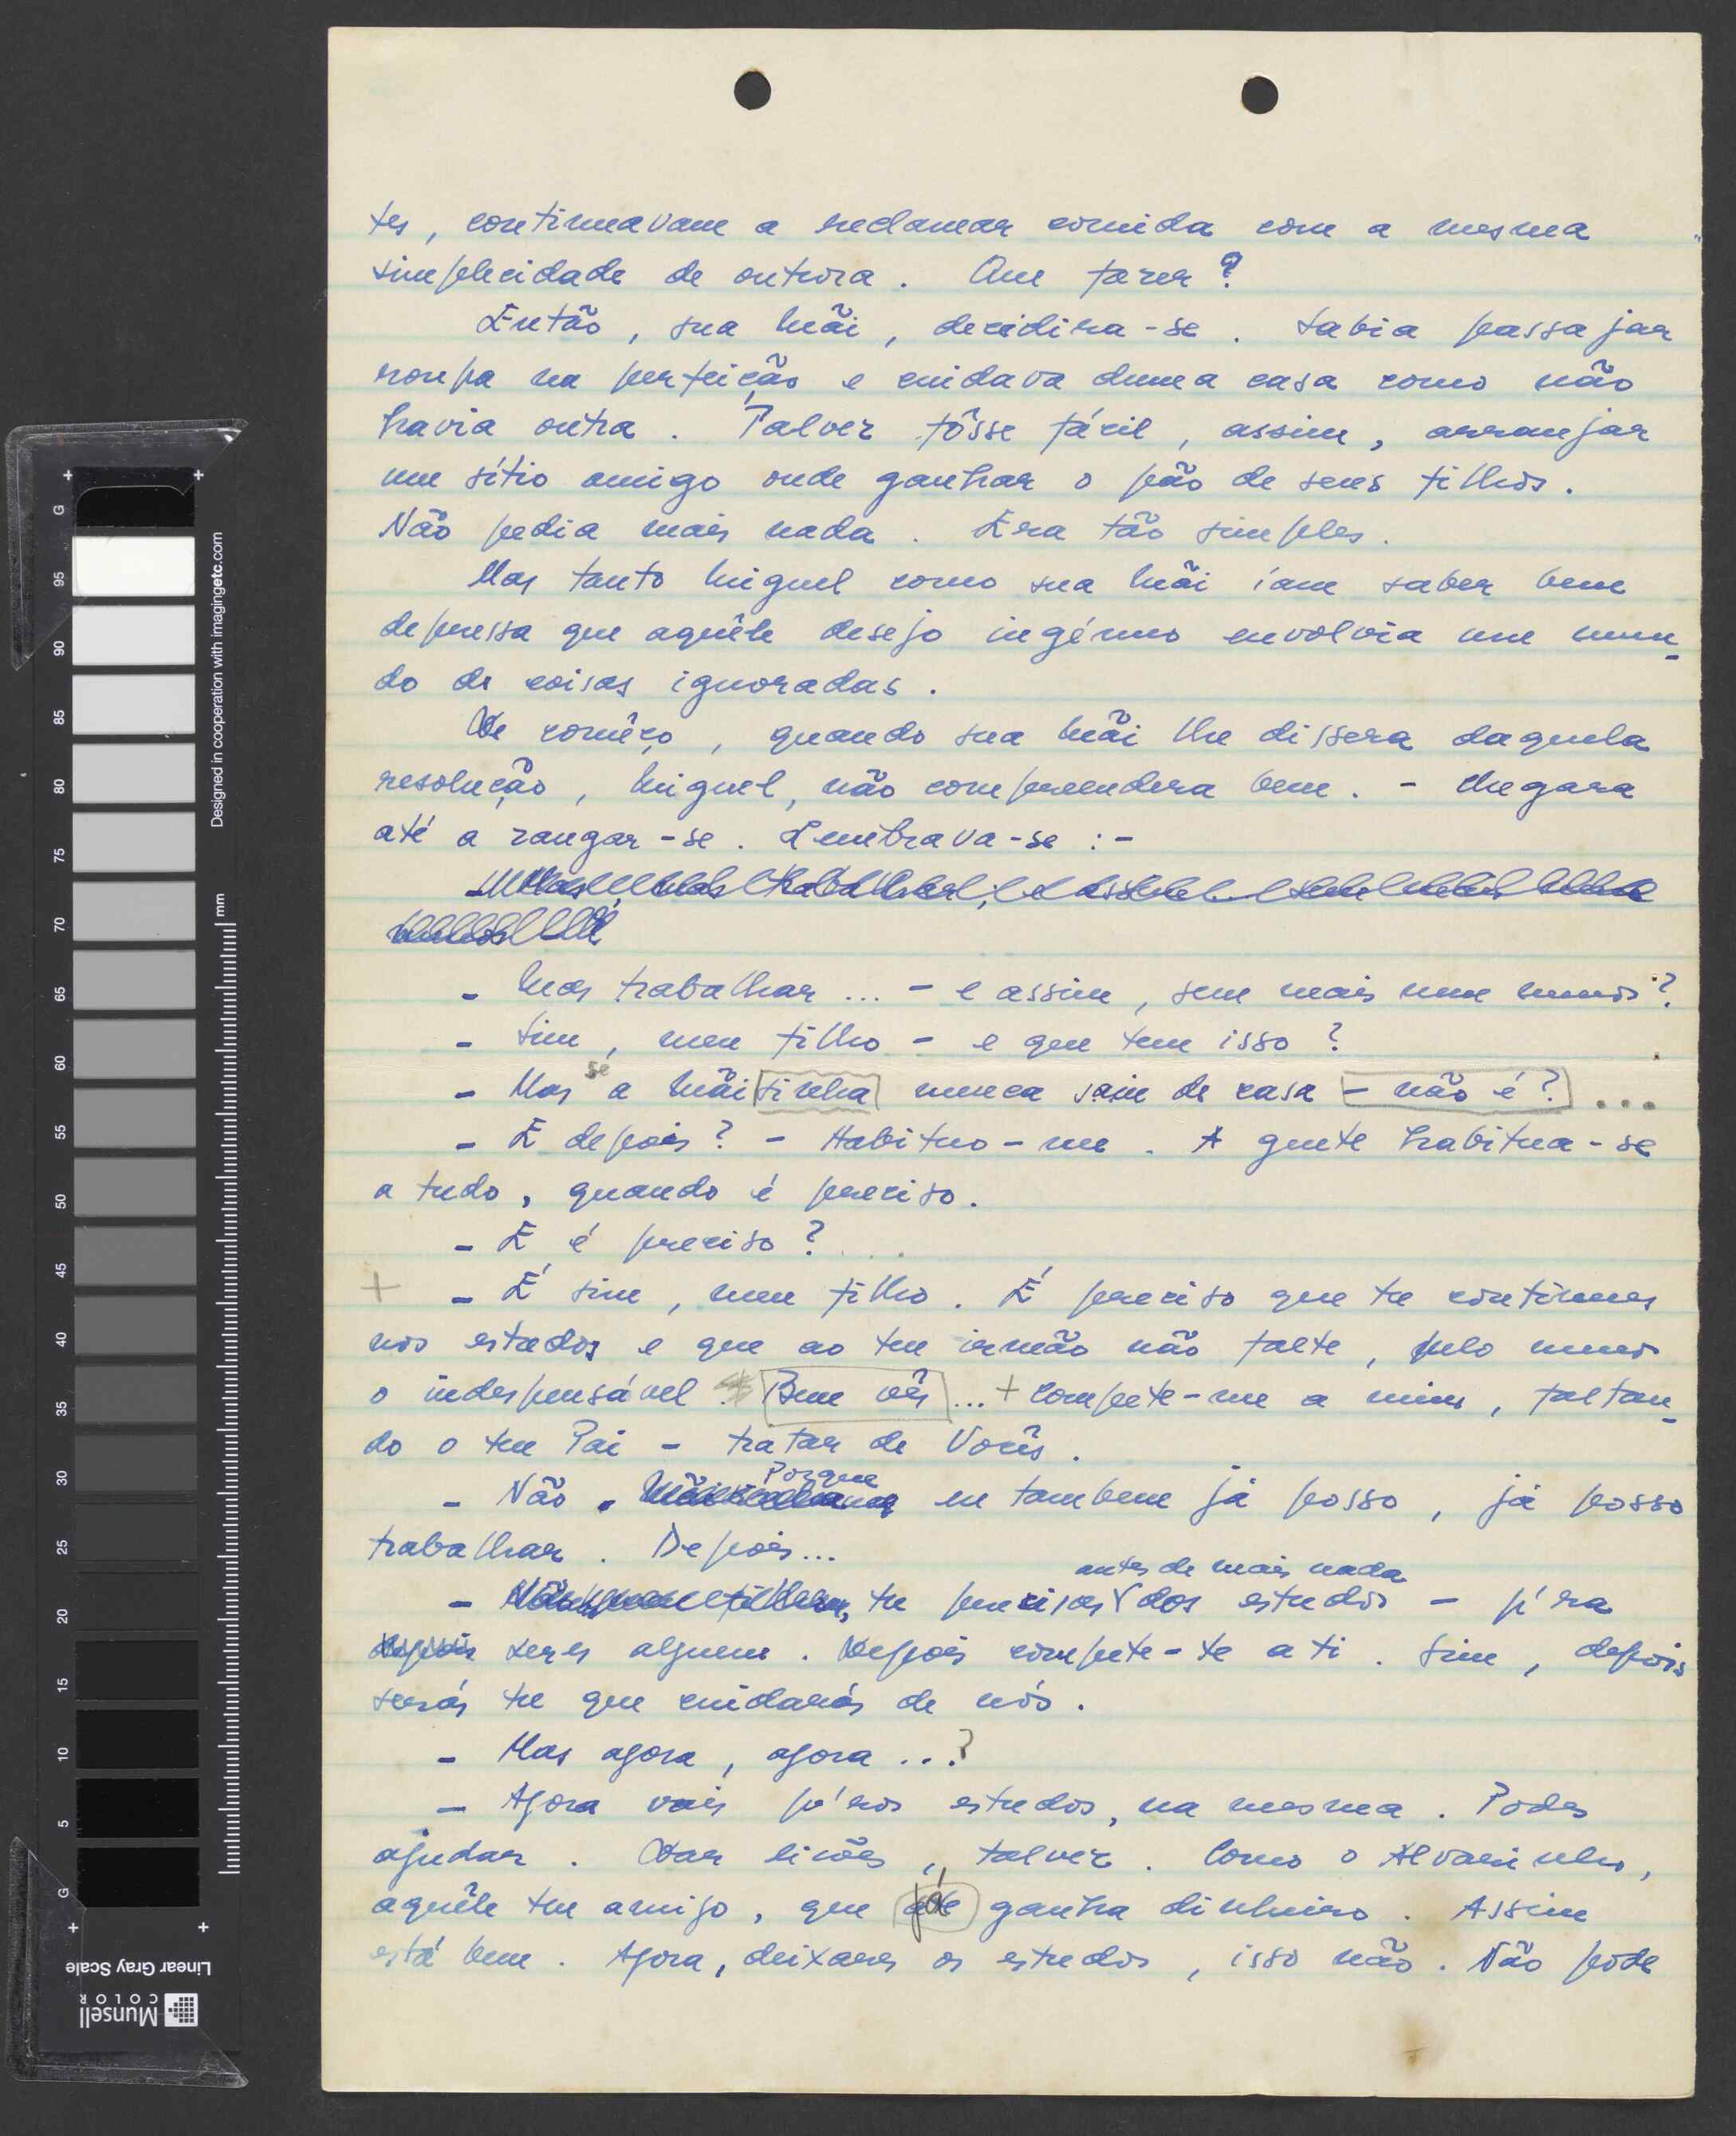 tes, continuavam a reclamar comida com a mesma
simplicidade de outrora. Que fazer?
Então, sua Mãi, decidira-se. Sabia passajar
roupa na perfeição e cuidava duma casa como não
havia outra. Talvez fôsse fácil, assim, arranjar
um sítio amigo onde ganhar o pão de seus filhos.
Não pedia mais nada. Era tão simples.
Mas tanto Miguel como sua Mãi íam saber bem
depressa que aquêle desejo ingénuo envolvia um mun-
do de coisas ignoradas.
De comêço, quando sua Mãi lhe dissera daquela
resolução, Miguel, não compreendera bem. - Chegara
até a zangar-se. Lembrava-se :-
- Mas trabalhar... - e assim, sem mais nem menos?
- Sim, meu filho - e que tem isso?
- Mas se a Mãisinha nunca saiu de casa - não é? ...
- E depois? - Habituo-me. A gente habitua-se
a tudo, quando é preciso.
- E é preciso?
+ - É sim, meu filho. É preciso que tu contínues
nos estudos e que ao teu irmão não falte, pelo menos
o indespensável. Bem vês ... + Compete-me a mim, faltan-
do o teu Pai - tratar de Vocês.
- Não. Porque eu tambem já posso, já posso
trabalhar. Depois...
- tu precisas antes de mais nada dos estudos - p'ra
seres alguem. Depois compete-te a ti. Sim, depois
serás tu que cuidarás de nós.
- Mas agora, agora...?
- Agora vais p'ros estudos, na mesma. Podes
ajudar. Dar lições, talvez. Como o Alvarinho,
aquêle teu amigo, que já ganha dinheiro. Assim
está bem. Agora, deixares os estudos, isso não. Não pode
Designed in cooperation with imagingetc.com
mm
G
95
90
85
80
75
70
65
60
55
50
45
40
35
30
25
20
15
10
5
G
Linear Gray Scale
Munsell
COLOR